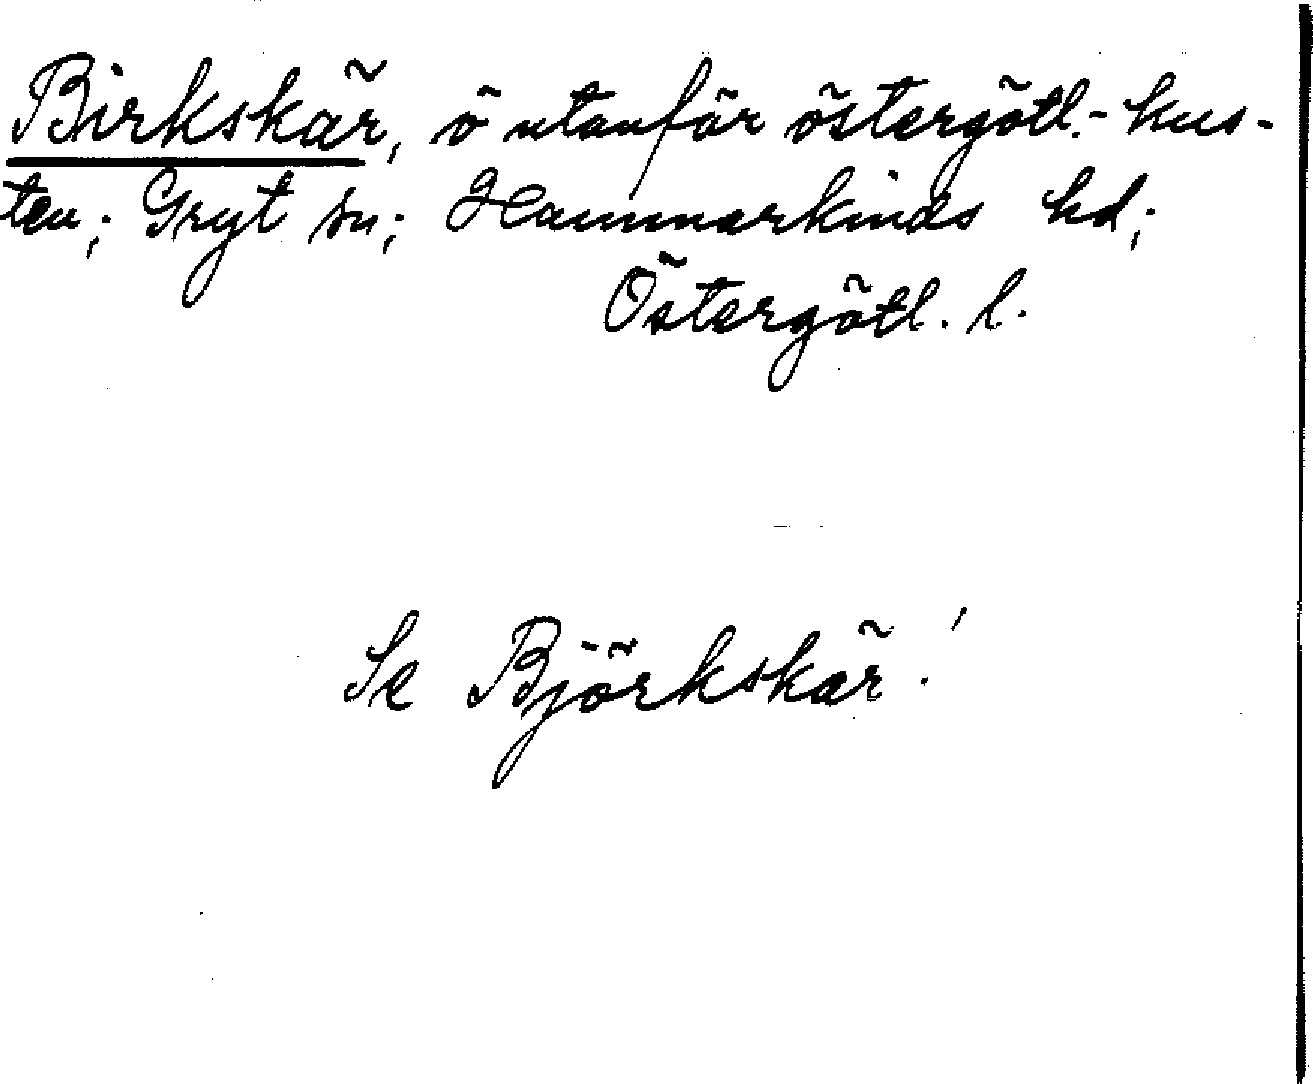 Birkskär, ö utanför östergötl.-kus-
ten; Gryt sn; Hammarkinds hd;
Östergötl. l.
Se Björkskär!